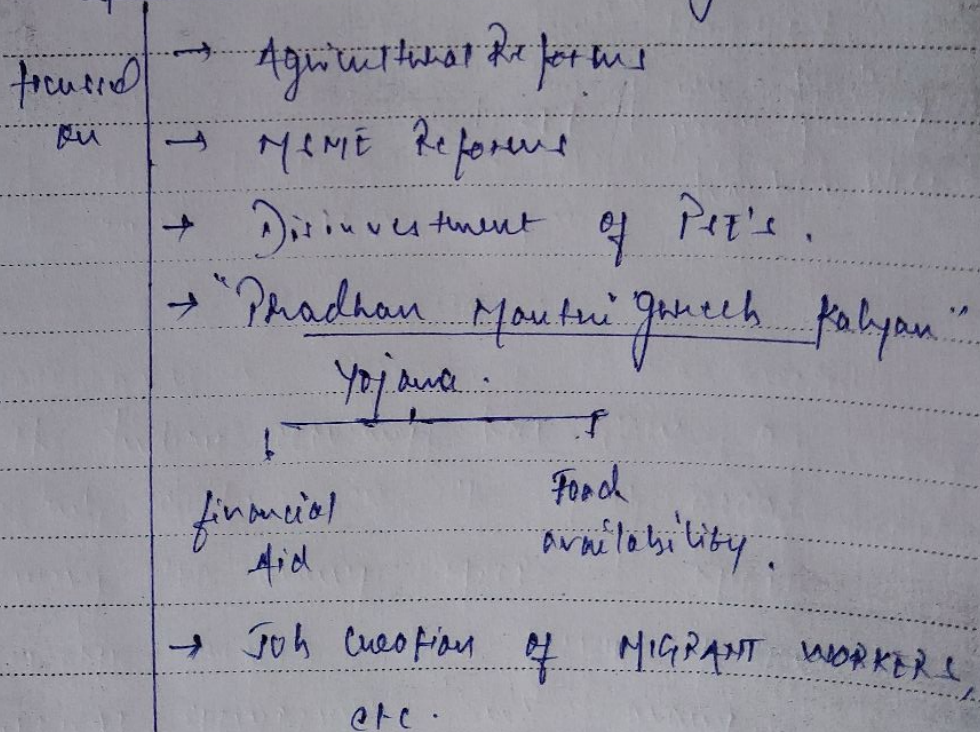 focused → Agricultural Reforms
on → MSME Reforms
→ Disinvestment of PSE's.
→ "Pradhan Mantri Gareeb Kalyan"
Yojana.
financial Food
Aid availability.
→ Job Creation of MIGRANT WORKERS,
etc.